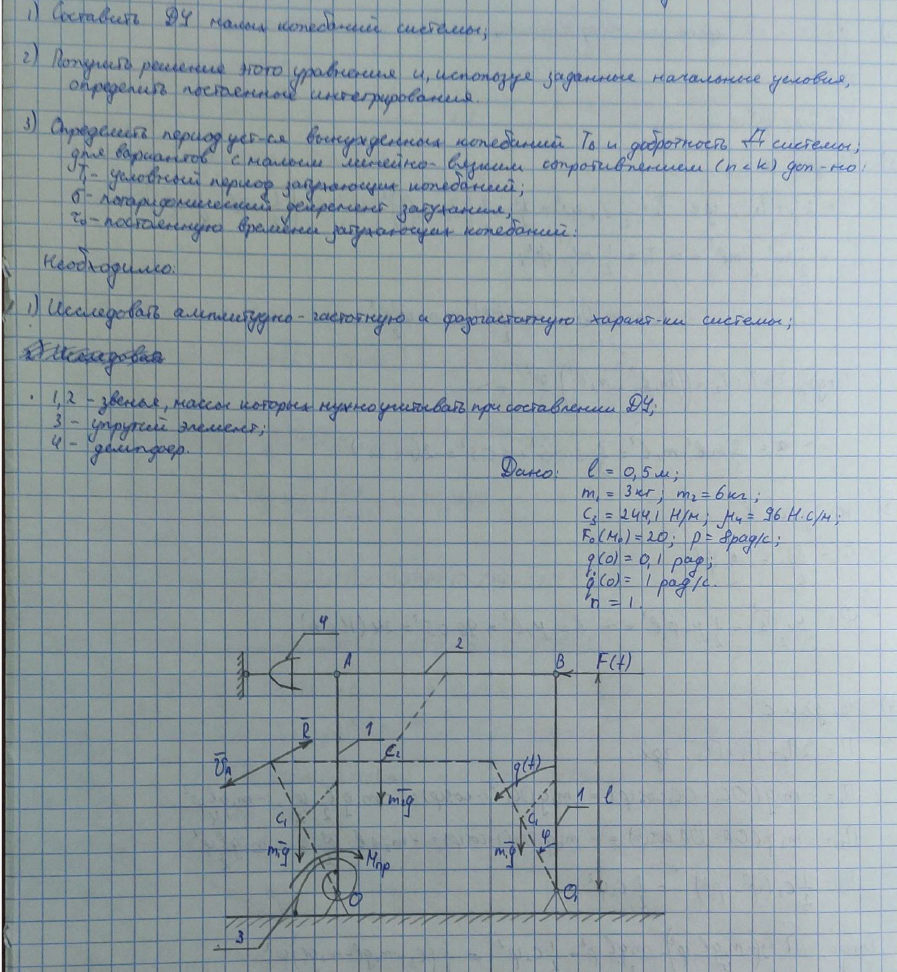 1) Составить ДУ малых колебаний системы;
2) Получить решение этого уравнения и, используя заданные начальные условия,
определить постоянные интегрирования.
3) Определить период уст-ся вынужденных колебаний T₀ и добротность Д системы;
для вариантов с малым линейно-вязким сопротивлением (n<k) доп-но:
T₁ - условный период затухающих колебаний;
δ - логарифмический декремент затухания;
τ₀ - постоянную времени затухающих колебаний:
Необходимо:
1) Исследовать амплитудно-частотную и фазочастотную характ-ки системы;
2) Исследоват
1,2 - звенья, массы которых нужно учитывать при составлении ДУ;
3 - упругий элемент;
4 - демпфер.
Дано: l = 0,5 м;
m₁ = 3 кг; m₂ = 6 кг;
c₃ = 244,1 Н/м; μ₄ = 96 Н·с/м;
F₀(M₀) = 20; p = 8 рад/с;
q(0) = 0,1 рад;
q̇(0) = 1 рад/с.
n = 1.
4
2
A
B
F(t)
R̅
1
C₂
V̅A
q(t)
m₂g̅
1
l
C₁
C₁
φ
m₁g̅
m₁g̅
Mпр
O
O₁
3